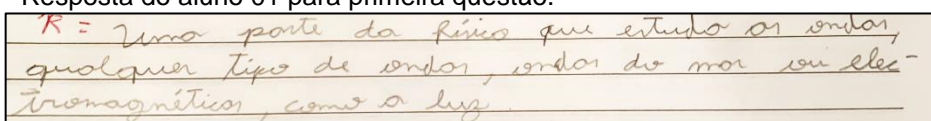 Resposta do aluno 01 para primeira questão:
R = Uma parte da física que estuda as ondas,
qualquer tipo de ondas, ondas do mar ou elec-
tromagnéticas, como a luz.